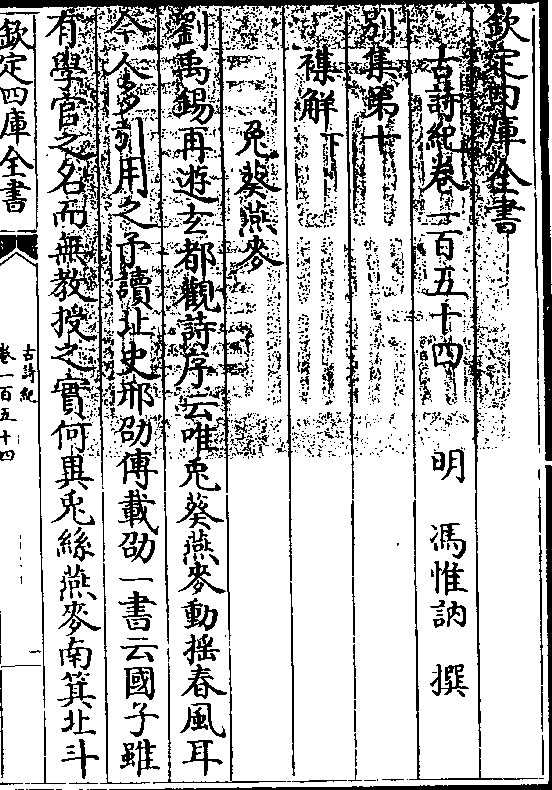 欽定四庫全書
古詩紀卷一百五十四　明　馮惟訥　撰
別集第十
襍解下
兎葵燕麥
劉禹錫再遊玄都觀詩序云唯兎葵燕麥動揺春風耳
今人多引用之予讀北史邢劭傳載劭一書云國子雖
有學官之名而無教授之實何異兎絲燕麥南箕北斗
欽定四庫全書
古詩紀
卷一百五十四
一